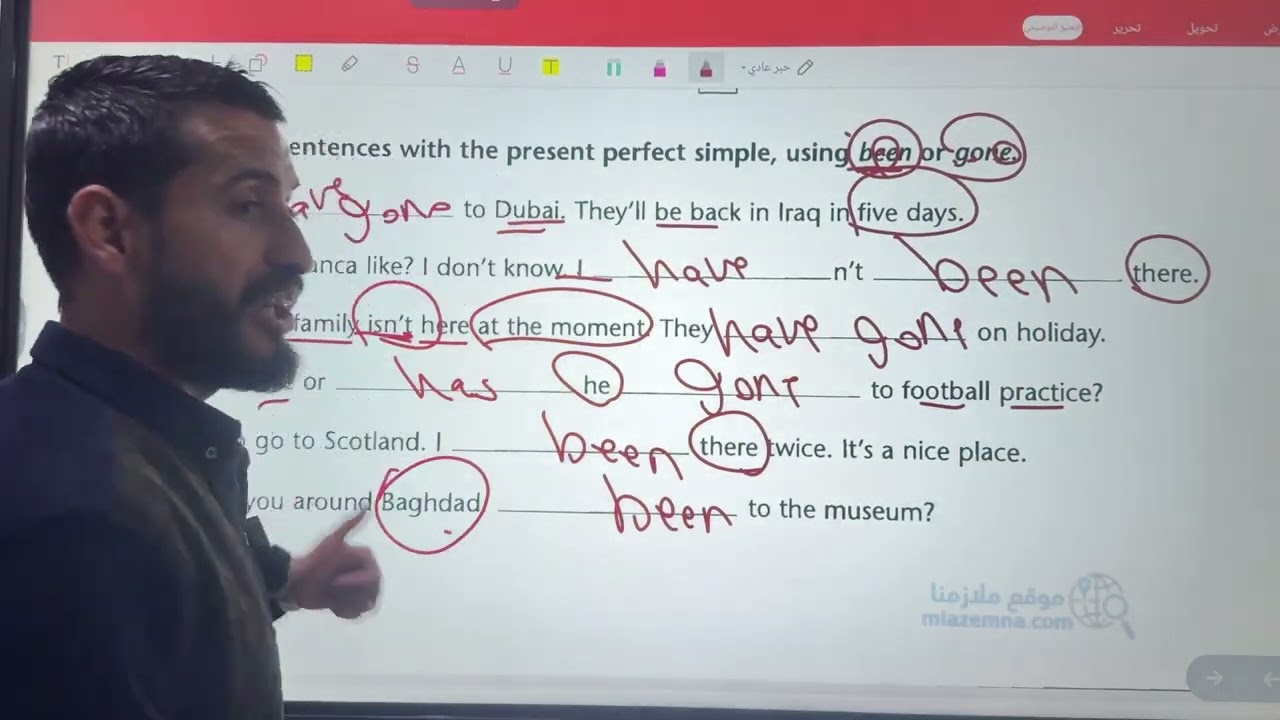 تحرير تحويل
حبر عادي
entences with the present perfect simple, using been or gone.
ave gone to Dubai. They'll be back in Iraq in five days.
anca like? I don't know I have n't been there.
family isn't here at the moment They have gone on holiday.
or has he gone to football practice?
go to Scotland. I been there twice. It's a nice place.
you around Baghdad been to the museum?
موقع ملازمنا
mlazemna.com